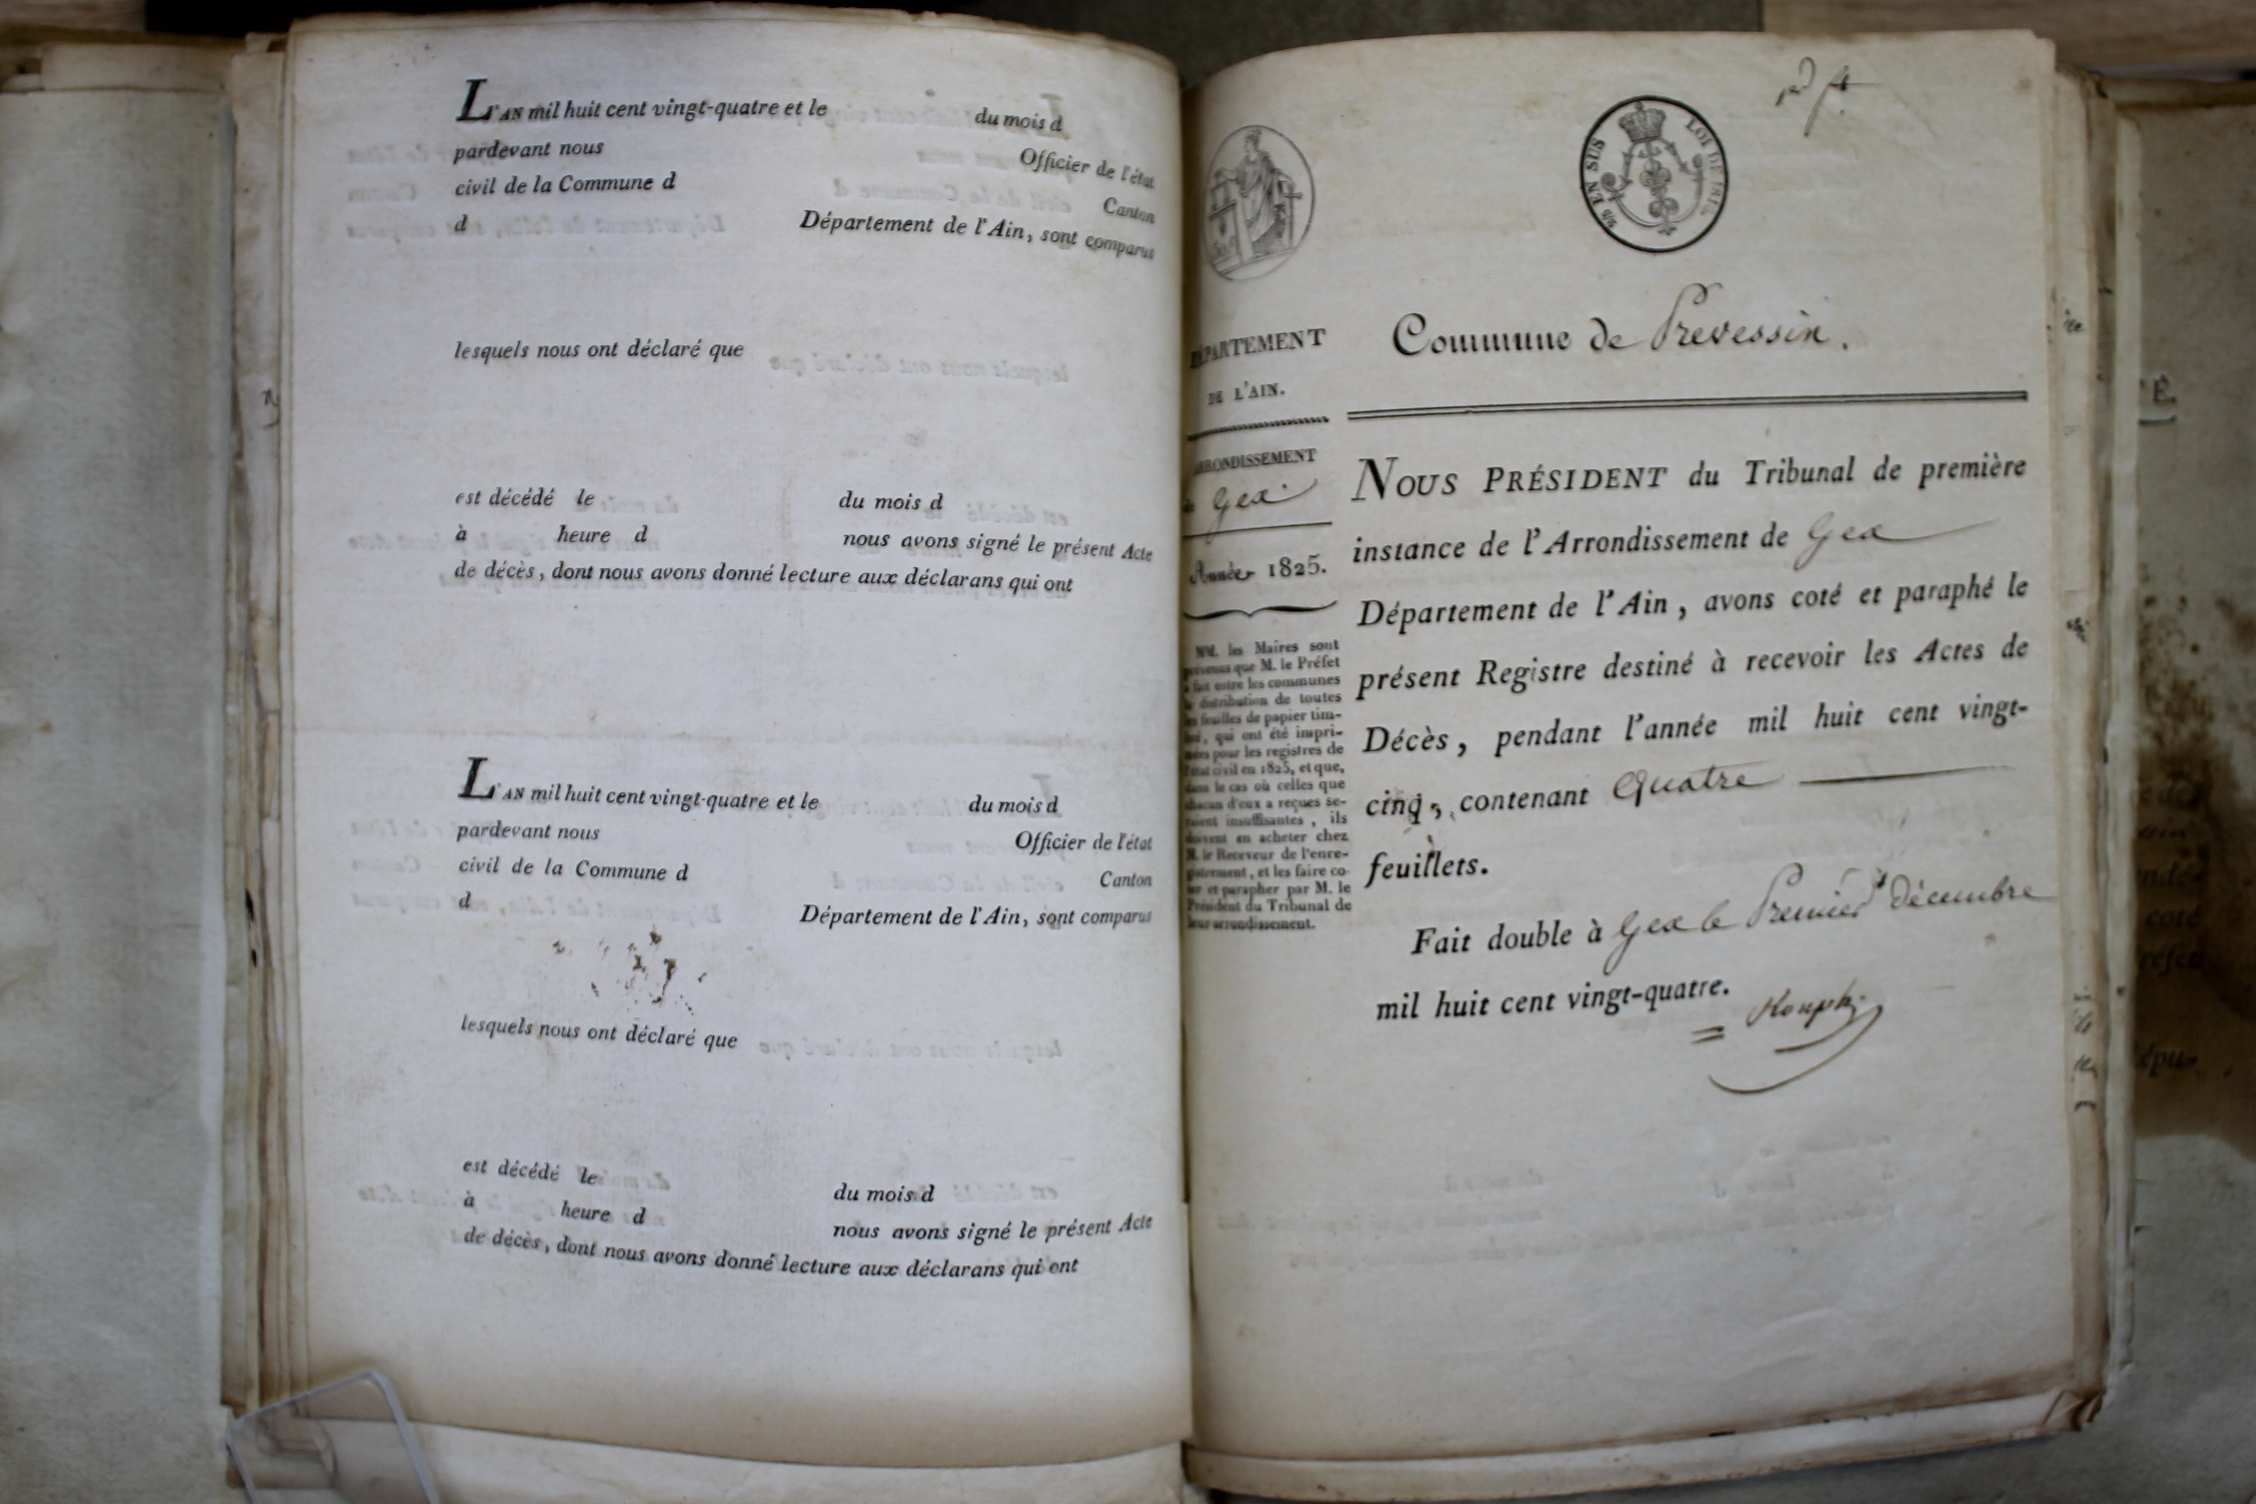 L'AN mil huit cent vingt-quatre et le du mois d
pardevant nous Officier de l'état
civil de la Commune d Canton
d Département de l'Ain, sont comparus
lesquels nous ont déclaré que
est décédé le du mois d
à heure d nous avons signé le présent Acte
de décès, dont nous avons donné lecture aux déclarans qui ont
L'AN mil huit cent vingt-quatre et le du mois d
pardevant nous Officier de l'état
civil de la Commune d Canton
d Département de l'Ain, sont comparus
lesquels nous ont déclaré que
est décédé le du mois d
à heure d nous avons signé le présent Acte
de décès, dont nous avons donné lecture aux déclarans qui ont
EN SUS
LOI DE 1816
DÉPARTEMENT
DE L'AIN.
ARRONDISSEMENT
de Gex
Année 1825.
MM. les Maires sont
prévenus que M. le Préfet
a fait entre les communes
la distribution de toutes
les feuilles de papier tim-
bré, qui ont été impri-
mées pour les registres de
l'état civil en 1825, et que,
dans le cas où celles que
chacun d'eux a reçues se-
raient insuffisantes, ils
doivent en acheter chez
M. le Receveur de l'enre-
gistrement, et les faire co-
ter et parapher par M. le
Président du Tribunal de
leur arrondissement.
Commune de Prevessin.
NOUS PRÉSIDENT du Tribunal de première
instance de l'Arrondissement de Gex
Département de l'Ain, avons coté et paraphé le
présent Registre destiné à recevoir les Actes de
Décès, pendant l'année mil huit cent vingt-
cinq, contenant Quatre
feuillets.
Fait double à Gex le Premier décembre
mil huit cent vingt-quatre.